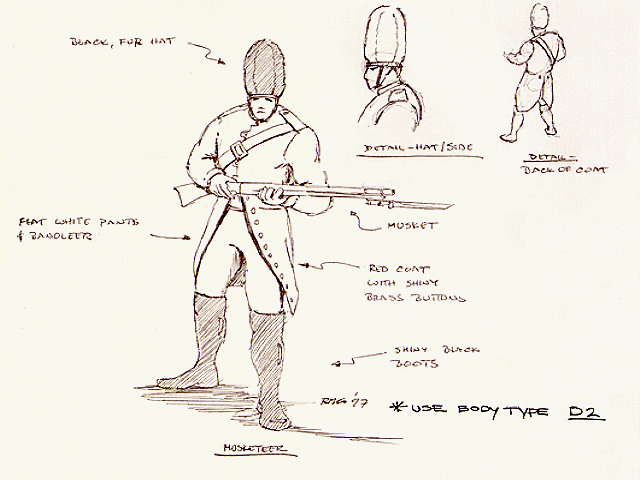 BLACK, FUR HAT
DETAIL-HAT/SIDE
DETAIL-
BACK OF COAT
FLAT WHITE PANTS
& BANDLEER
MUSKET
RED COAT
WITH SHINY
BRASS BUTTONS
SHINY BLACK
BOOTS
*USE BODY TYPE D2
MUSKETEER